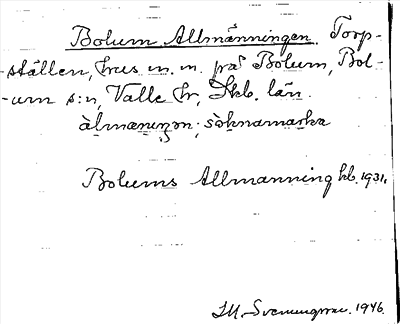 Bolum Allmänningen. Torp-
-ställen, hus m. m. på Bolum, Bol-
-um s:n, Valle hr, Skb. län.
àlmæneŋən; sòknamarka
Bolums Allmanning hb. 1931.
1946.